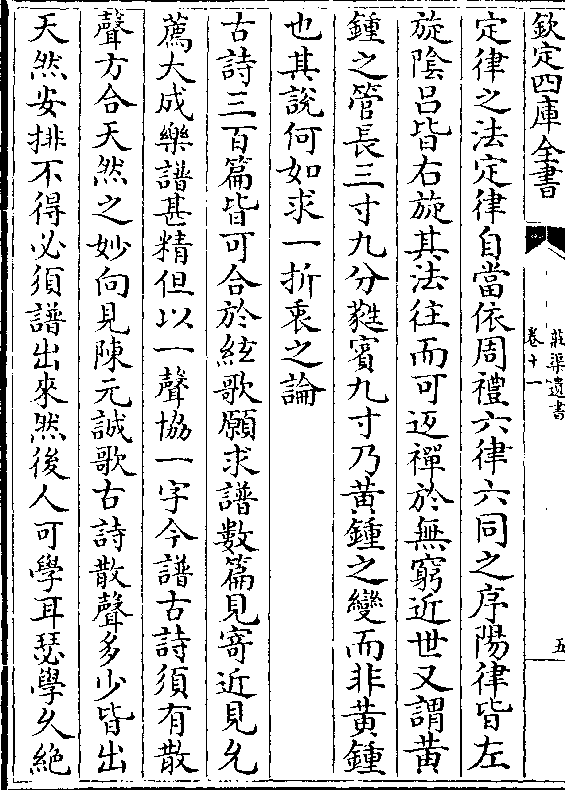 欽定四庫全書
莊渠遺書
卷十一
五
定律之法定律自當依周禮六律六同之序陽律皆左
旋陰呂皆右旋其法往而可返禪於無窮近世又謂黃
鍾之管長三寸九分蕤賓九寸乃黃鍾之變而非黃鍾
也其說何如求一折衷之論
古詩三百篇皆可合於絃歌願求譜數篇見寄近見允
薦大成樂譜甚精但以一聲協一字今譜古詩須有散
聲方合天然之妙向見陳元誠歌古詩散聲多少皆出
天然安排不得必須譜出來然後人可學耳瑟學久絶